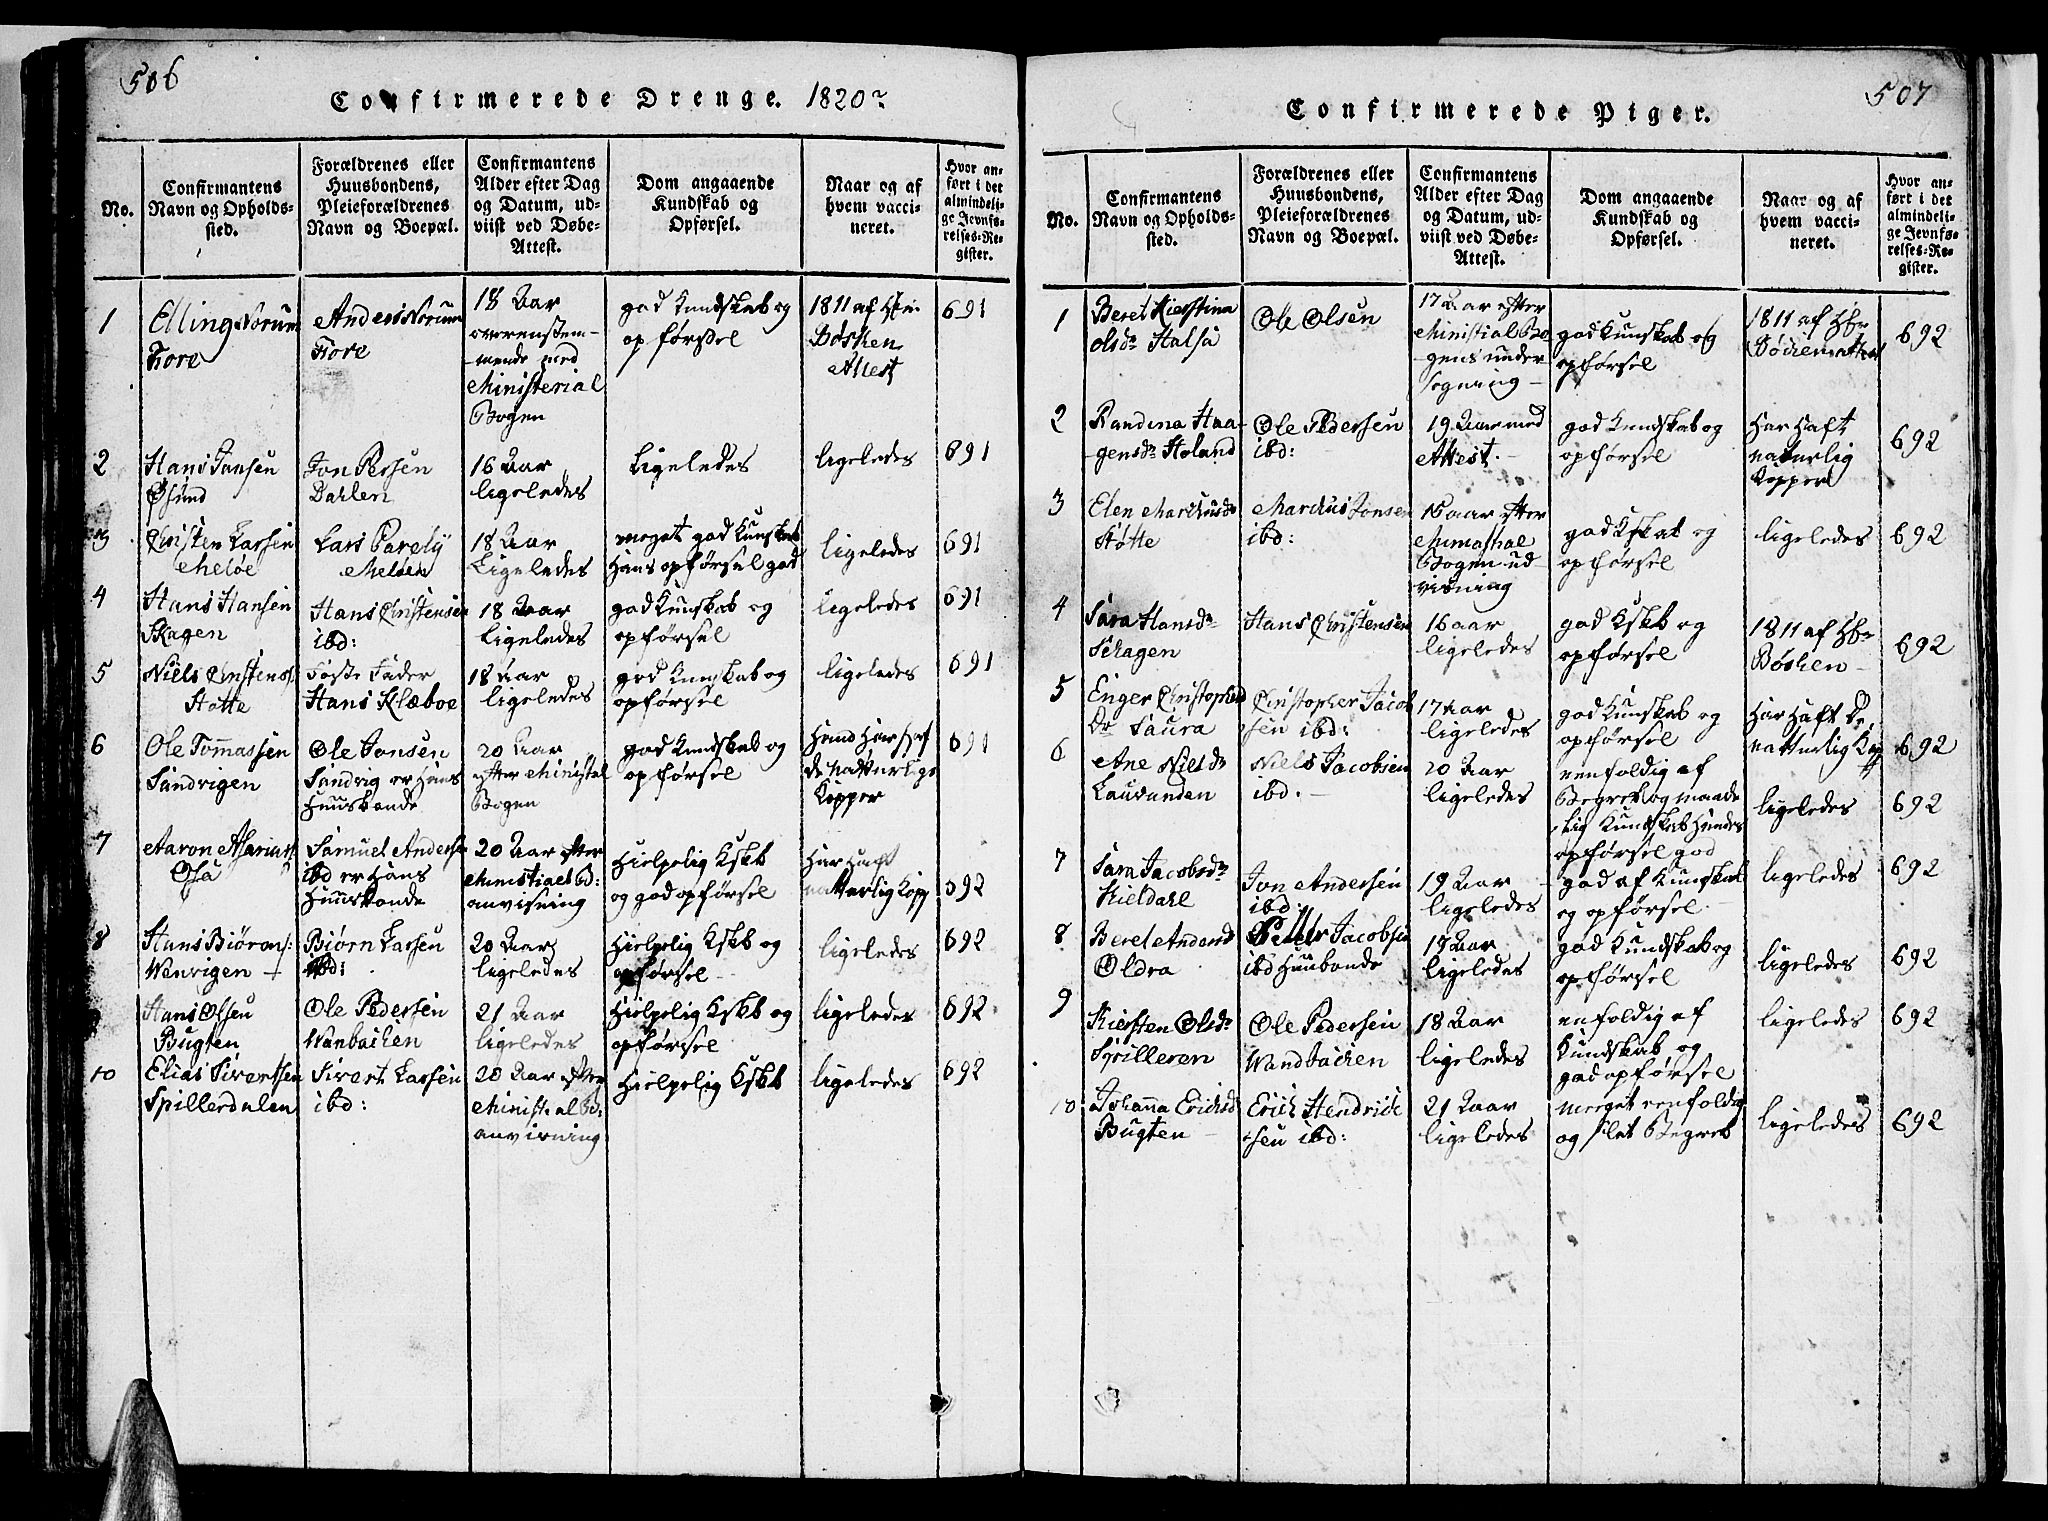 506
Confirmerede Drenge. 1820
No.
Confirmantens
Navn og Opholds-
sted.
Forældrenes eller
Huusbondens,
Pleieforældrenes
Navn og Boepæl.
Confirmantens
Alder efter Dag
og Datum, ud-
viist ved Døbe-
Attest.
Dom angaaende
Kundskab og
Opførsel.
Naar og af
hvem vacci-
neret.
Hvor an-
ført i det
almindeli-
ge Jevnfø-
relses-Re-
gister.
1
Elling
Fore
Anders
Fore
18 Aar
overenstem-
mende med
Ministerial
Bogen
god Kundskab og
opførsel
1811 af
Bøshen
Attest
691
2
Hans Jansen
Øsund
Jon Persen
Dahlen
16 Aar
ligeledes
Ligeledes
ligeledes
691
3
Christen Larsen
Meløe
Lars Parely
Meløen
18 Aar
Ligeledes
meget god Kunskab
Hans opførsel god
ligeledes
691
4
Hans Hansen
Skagen
Hans Christensen
ibd:
18 Aar
Ligeledes
god Kunskab og
opførsel
ligeledes
691
5
Niels Christens:
Støtte
Foste Fader
Hans Klæboe
18 Aar
ligeledes
god Kunskab og
opførsel
ligeledes
691
6
Ole Tommassen
Sandvigen
Ole Jonsen
Sandvig er Hans
Huusbonde
20 Aar
efter Ministal
Bogen
god Kundskab og
opførsel
Hand Har
de Natturlige
Kopper
691
7
Aaron Asarias:
Øsa
Samuel Anderse
ibd er Hans
Huusbonde
20 Aar efter
Ministiael B:
anvisning
Hielpelig Kskb
og god opførsel
Har Haft
natturlig Kopp
692
8
Hans Biørons:
Wenvigen
Biørn Larsen
ibd:
20 Aar
ligeledes
Hielpelig Kskb og
opførsel
ligeledes
692
Hans Olsen
Bugten
Ole Pedersen
Wanbachen
21 Aar
ligeledes
Hielpelig Kskb og
opførsel
ligeledes
692
10
Elias Sivertsen
Spillerdalen
Sivert Larsen
ibd:
20 Aar efter
Ministr al B:
anvisning
Hielpelig Kskb
ligeledes
692
507
Confirmerede Piger.
No.
Confirmantens
Navn og Opholds-
sted.
Forældrenes eller
Huusbondens,
Pleieforældrenes
Navn og Boepæl.
Confirmantens
Alder efter Dag
og Datum, ud-
viist ved Døbe-
Attest.
Dom angaaende
Kundskab og
Opførsel.
Naar og af
hvem vacci-
neret.
Hvor an-
ført i det
almindeli-
ge Jevnfø-
relses-Re-
gister.
1
Beret Kierstina
olsdr Halsa
Ole Olsen
17 Aar efter
Ministial Bo
gens under
søgning
god Kunskab og
opførsel
1811 af Hr
692
2
Randina Haa-
gensdr Holand
Ole Pedersen
ibd:
19 Aar med
Attest.
god Kundskab og
opførsel
Har Haft
naturlig
Kopper
692
3
Elen Marchusdr
Støtte
Marchus Jonsen
ibd:
16 aar efter
Bogen ud-
visning
god Kskab og
opførsel
ligeledes
692
4
Sara Hansdr
Schagen
Hans Christensen
16 aar
ligeledes
god Kskb og
opførsel
1811 af Hr
Bøshen
692
5
Enger Christophers
Dr Saura
Christopher Jacob
sen ibd:
17 aar
ligeledes
god Kunskab og
opførsel
Har Haft De
natturlig Kopp
692
6
Ane Nielsdr
Laursunden
Niels Jacobsen
ibd:
20 Aar
ligeledes
eenfoldig af
Begreb og maade
lig Kundskab Hendes
opførsel god
ligeledes
692
7
Sara Jacobsdr
Kieldahl
Jon Andersen
ibd:
19 Aar
ligeledes
god af Kunskab
og opførsel
ligeledes
692
8
Beret Andersd
Oldra
Peder Jacobsen
ibd Huusbonde
18 Aar
ligeledes
god Kundskab og
opførsel
ligeledes
692
9
Kiersten Olsdr
Spilleren
Ole Pedersen
Wandbachen
18 Aar
ligeledes
enfoldig af
Kundskab og
god opførsel
ligeledes
692
10
Johanna Erichsd
Bugten
Erich Hendrich
sen ibd:
21 Aar
ligeledes
meget eenfoldig
og slet Begreb
ligeledes
692